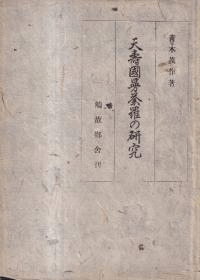 青木茂作著
天壽國曼荼羅の研究
鵤故鄕舍刊